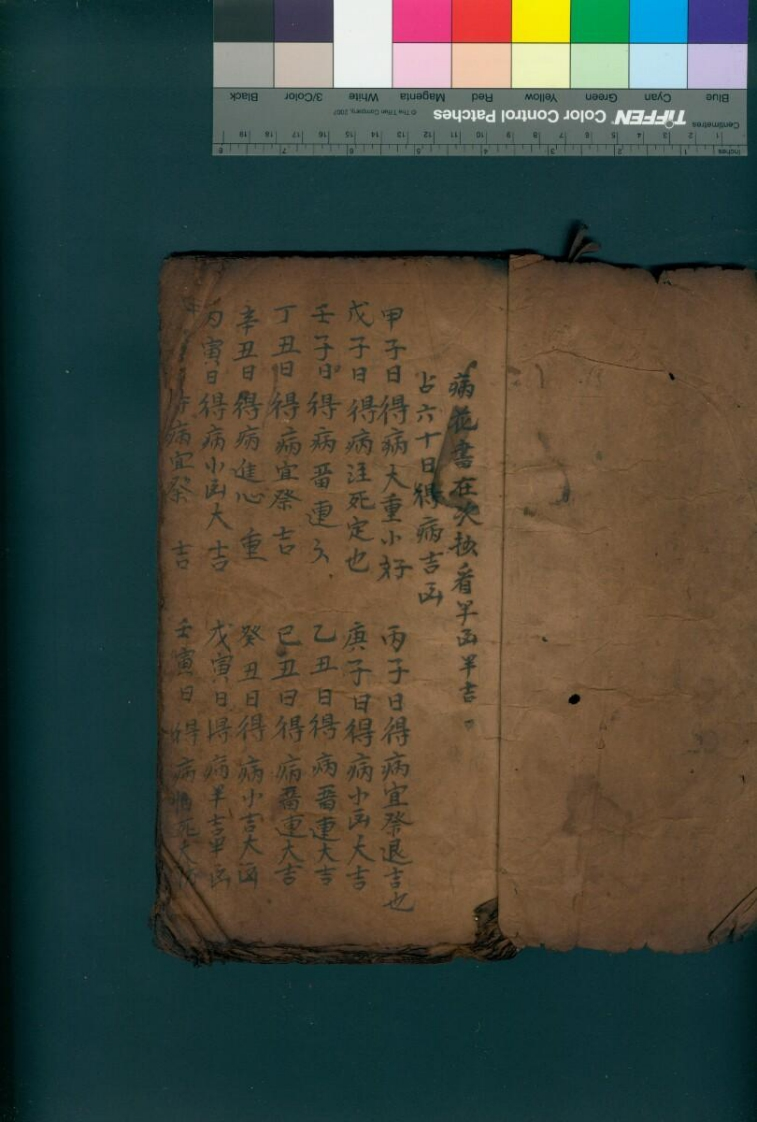 Blue Cyan Green Yellow Red Magenta White 3/Color Black
Centimetres TIFFEN Color Control Patches © The Tiffen Company, 2007
1 2 3 4 5 6 7 8 9 10 11 12 13 14 15 16 17 18 19
Inches 1 2 3 4 5 6 7 8
病花書在次抄看半凶半吉
占六十日得病吉凶
甲子日得病大重小好 丙子日得病宜祭退吉也
戊子日得病注死定也 庚子日得病小凶大吉
壬子日得病畨連 乙丑日得病畨連大吉
丁丑日得病宜祭吉 己丑日得病畨連大吉
辛丑日得病進心重 癸丑日得病小吉大凶
丙寅日得病小凶大吉 戊寅日得病半吉半凶
病宜祭吉 壬寅日得病死大